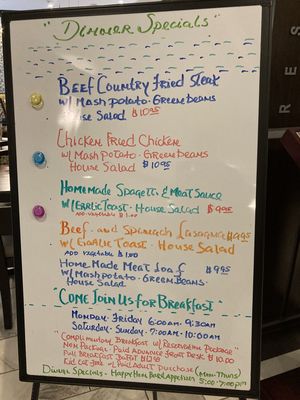 "Dinner Specials"
Beef Country Fried Steak
w/ Mash Potato · Green Beans
House Salad $10.95
Chicken Fried Chicken
w/ Mash Potato · Green Beans
House Salad $10.95
Homemade Spagetti & Meat Sauce
w/ Garlic Toast · House Salad $9.95
Add Vegetable $1.00
Beef and Spinach Lasagna $9.95
w/ Garlic Toast · House Salad
Add Vegetable $1.00
Home Made Meat Loaf $9.95
w/ Mash Potato · Green Beans
House Salad
"Come Join Us for Breakfast"
Monday-Friday 6:00am-9:30am
Saturday-Sunday 7:00am-10:00am
"Complimentary Breakfast w/ Reservations Package"
Non Package - Paid Advance Front Desk $10.00
Full Breakfast Buffet
Dinner Specials - Happy Hour
5:00-7:00pm
RES